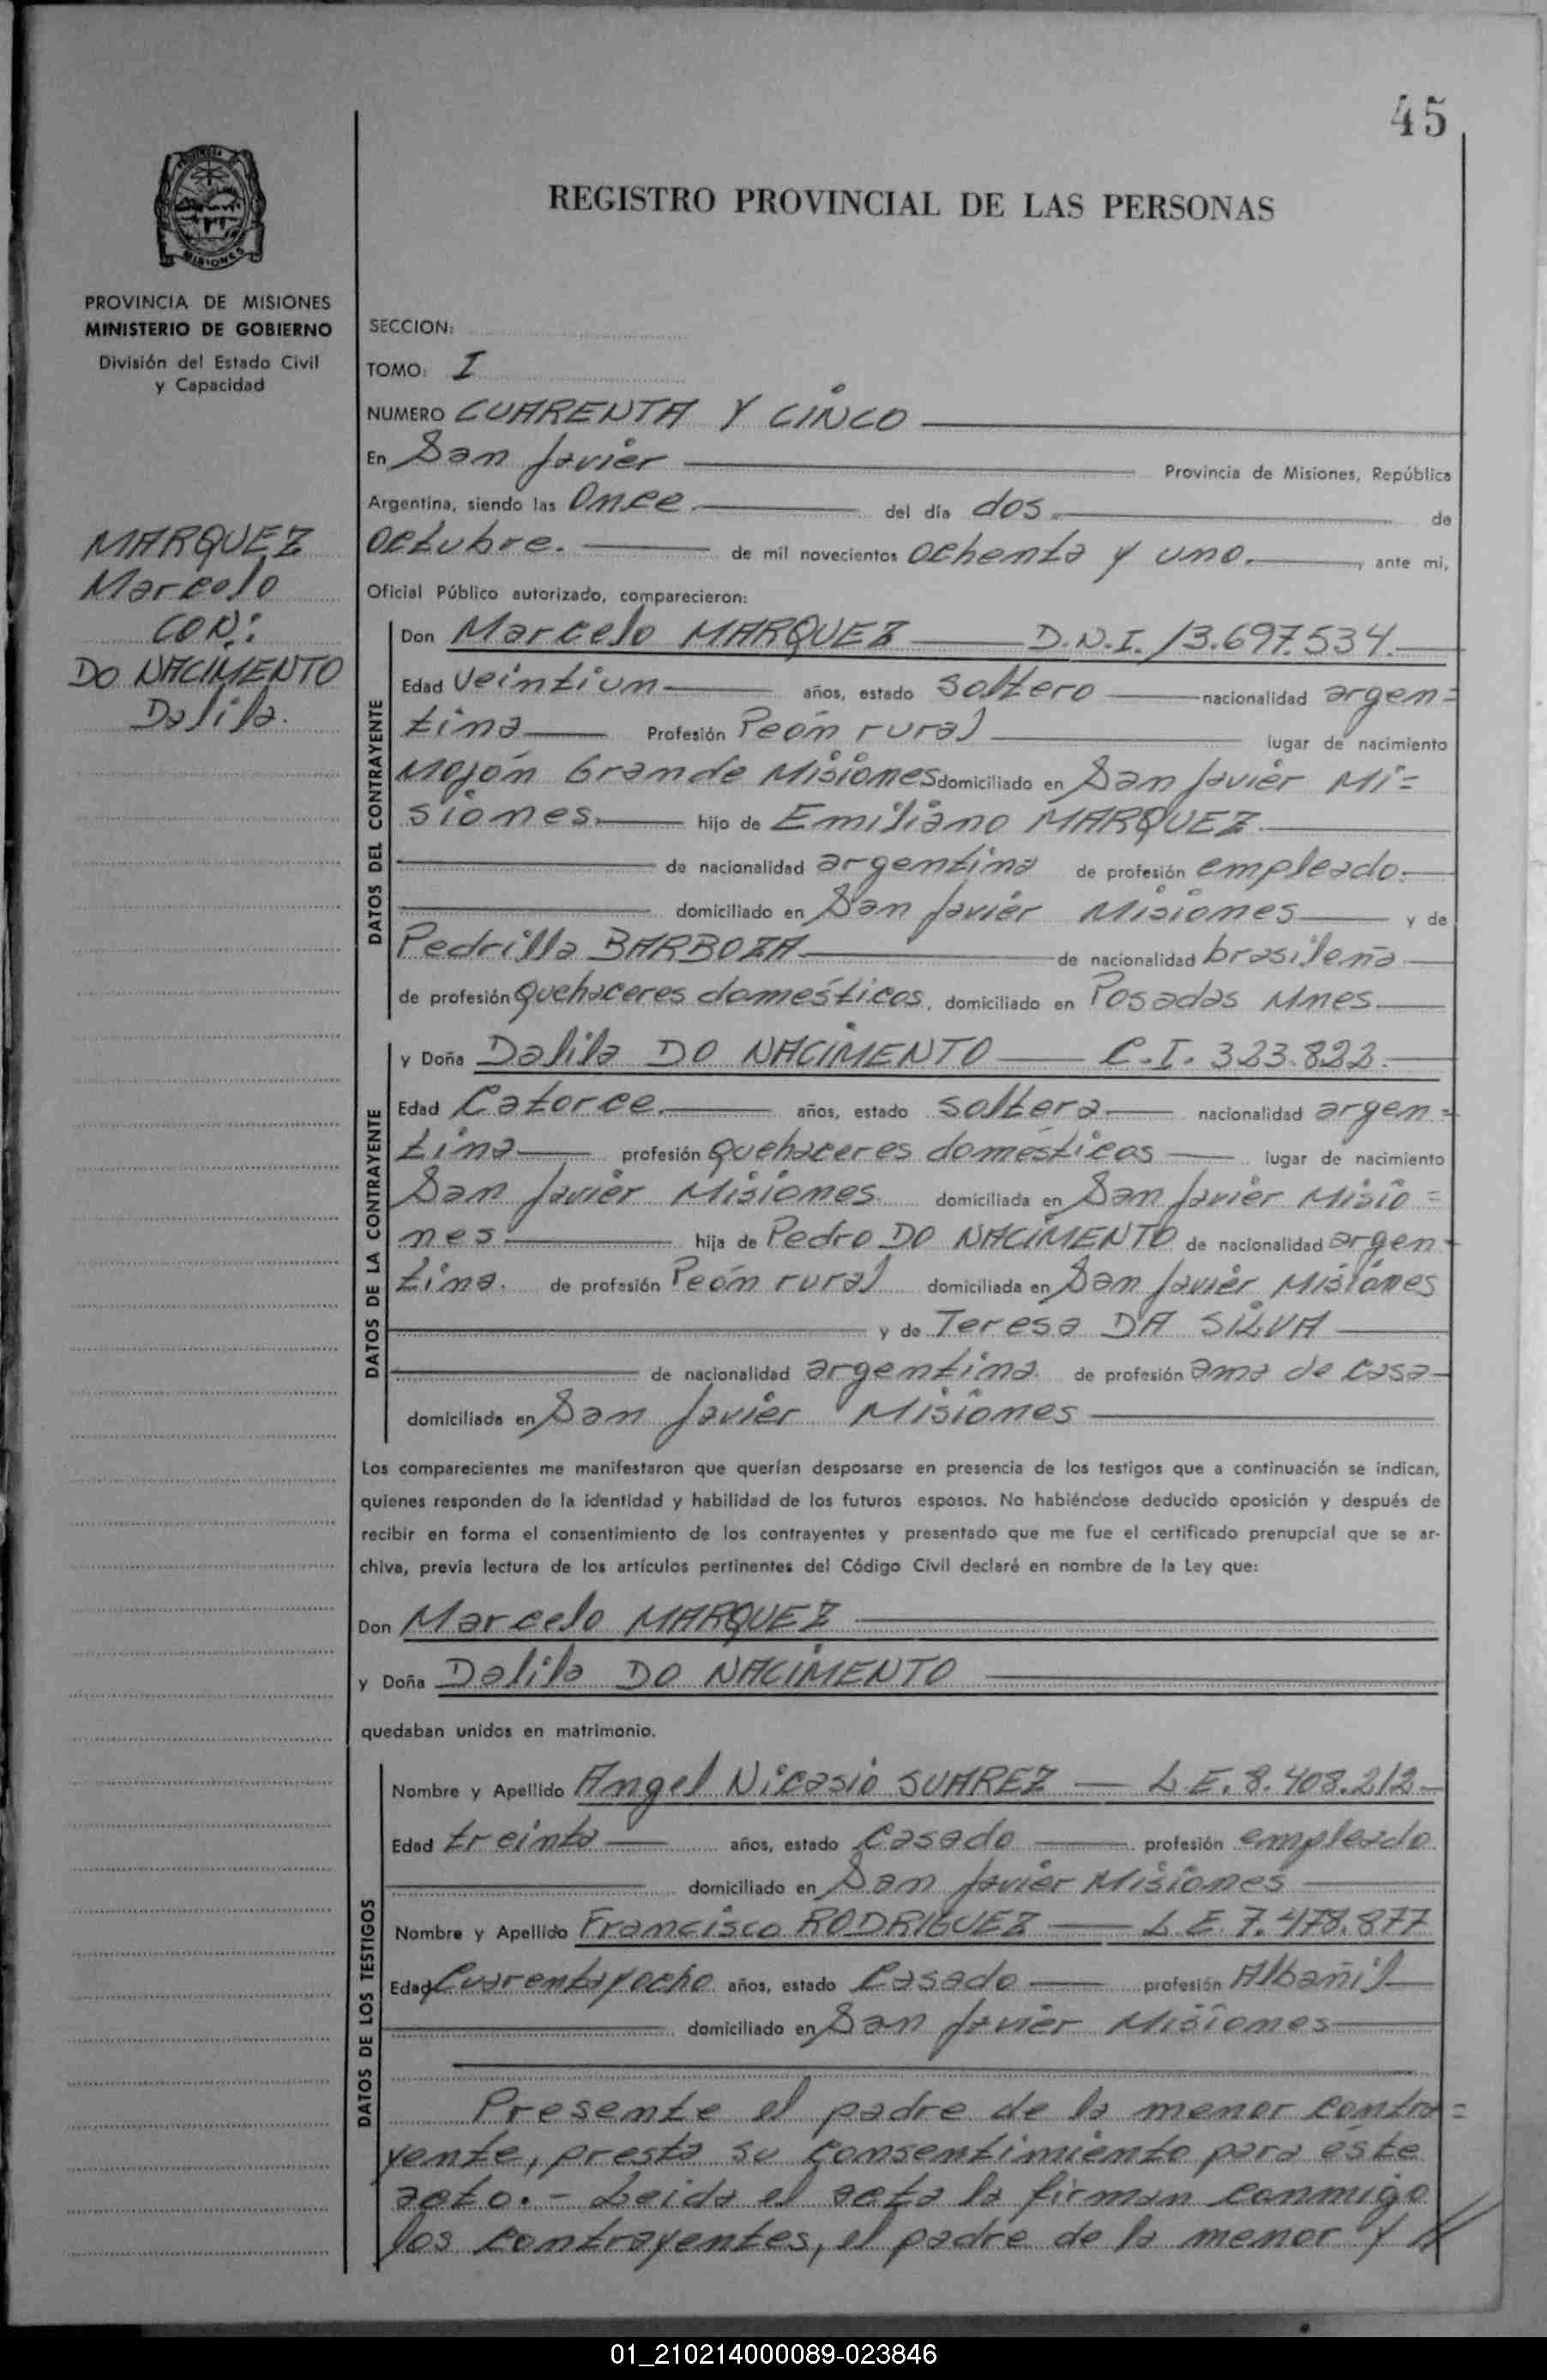 45
REGISTRO PROVINCIAL DE LAS PERSONAS
PROVINCIA
MISIONES
PROVINCIA DE MISIONES
MINISTERIO DE GOBIERNO
División del Estado Civil
y Capacidad
MARQUEZ
Marcelo
CON:
DO NACIMENTO
Dalila.
SECCION:
TOMO: I
NUMERO CUARENTA Y CINCO
En San Javier Provincia de Misiones, República
Argentina, siendo las Once del día dos de
Octubre. de mil novecientos ochenta y uno. , ante mi,
Oficial Público autorizado, comparecieron:
DATOS DEL CONTRAYENTE
Don Marcelo MARQUEZ D.N.I. 13.697.534.
Edad Veintiun años, estado soltero nacionalidad argen=
tina Profesión Peón rural lugar de nacimiento
Mojón Grande Misiones domiciliado en San Javier Mi=
siones. hijo de Emiliano MARQUEZ.
de nacionalidad argentina de profesión empleado.
domiciliado en San Javier Misiones y de
Pedrilla BARBOZA de nacionalidad brasileña
de profesión quehaceres domésticos, domiciliado en Posadas Mnes.
DATOS DE LA CONTRAYENTE
y Doña Dalila DO NACIMENTO C.I. 323.822.
Edad Catorce. años, estado soltera nacionalidad argen=
tina profesión quehaceres domésticos lugar de nacimiento
San Javier Misiones domiciliada en San Javier Misio=
nes. hija de Pedro DO NACIMENTO de nacionalidad argen-
tina. de profesión Peón rural domiciliada en San Javier Misiones
y de Teresa DA SILVA
de nacionalidad argentina. de profesión ama de casa
domiciliada en San Javier Misiones
Los comparecientes me manifestaron que querían desposarse en presencia de los testigos que a continuación se indican,
quienes responden de la identidad y habilidad de los futuros esposos. No habiéndose deducido oposición y después de
recibir en forma el consentimiento de los contrayentes y presentado que me fue el certificado prenupcial que se ar-
chiva, previa lectura de los artículos pertinentes del Código Civil declaré en nombre de la Ley que:
Don Marcelo MARQUEZ
y Doña Dalila DO NACIMENTO
quedaban unidos en matrimonio.
DATOS DE LOS TESTIGOS
Nombre y Apellido Angel Nicasio SUAREZ L.E. 8.408.212
Edad treinta años, estado casado profesión empleado
domiciliado en San Javier Misiones
Nombre y Apellido Francisco RODRIGUEZ L.E. 7.478.877
Edad Cuarentayocho años, estado Casado profesión Albañil
domiciliado en San Javier Misiones
Presente el padre de la menor contra=
yente, presta su consentimiento para éste
acto.- Leida el acta la firman conmigo
los contrayentes, el padre de la menor y //
01_210214000089-023846